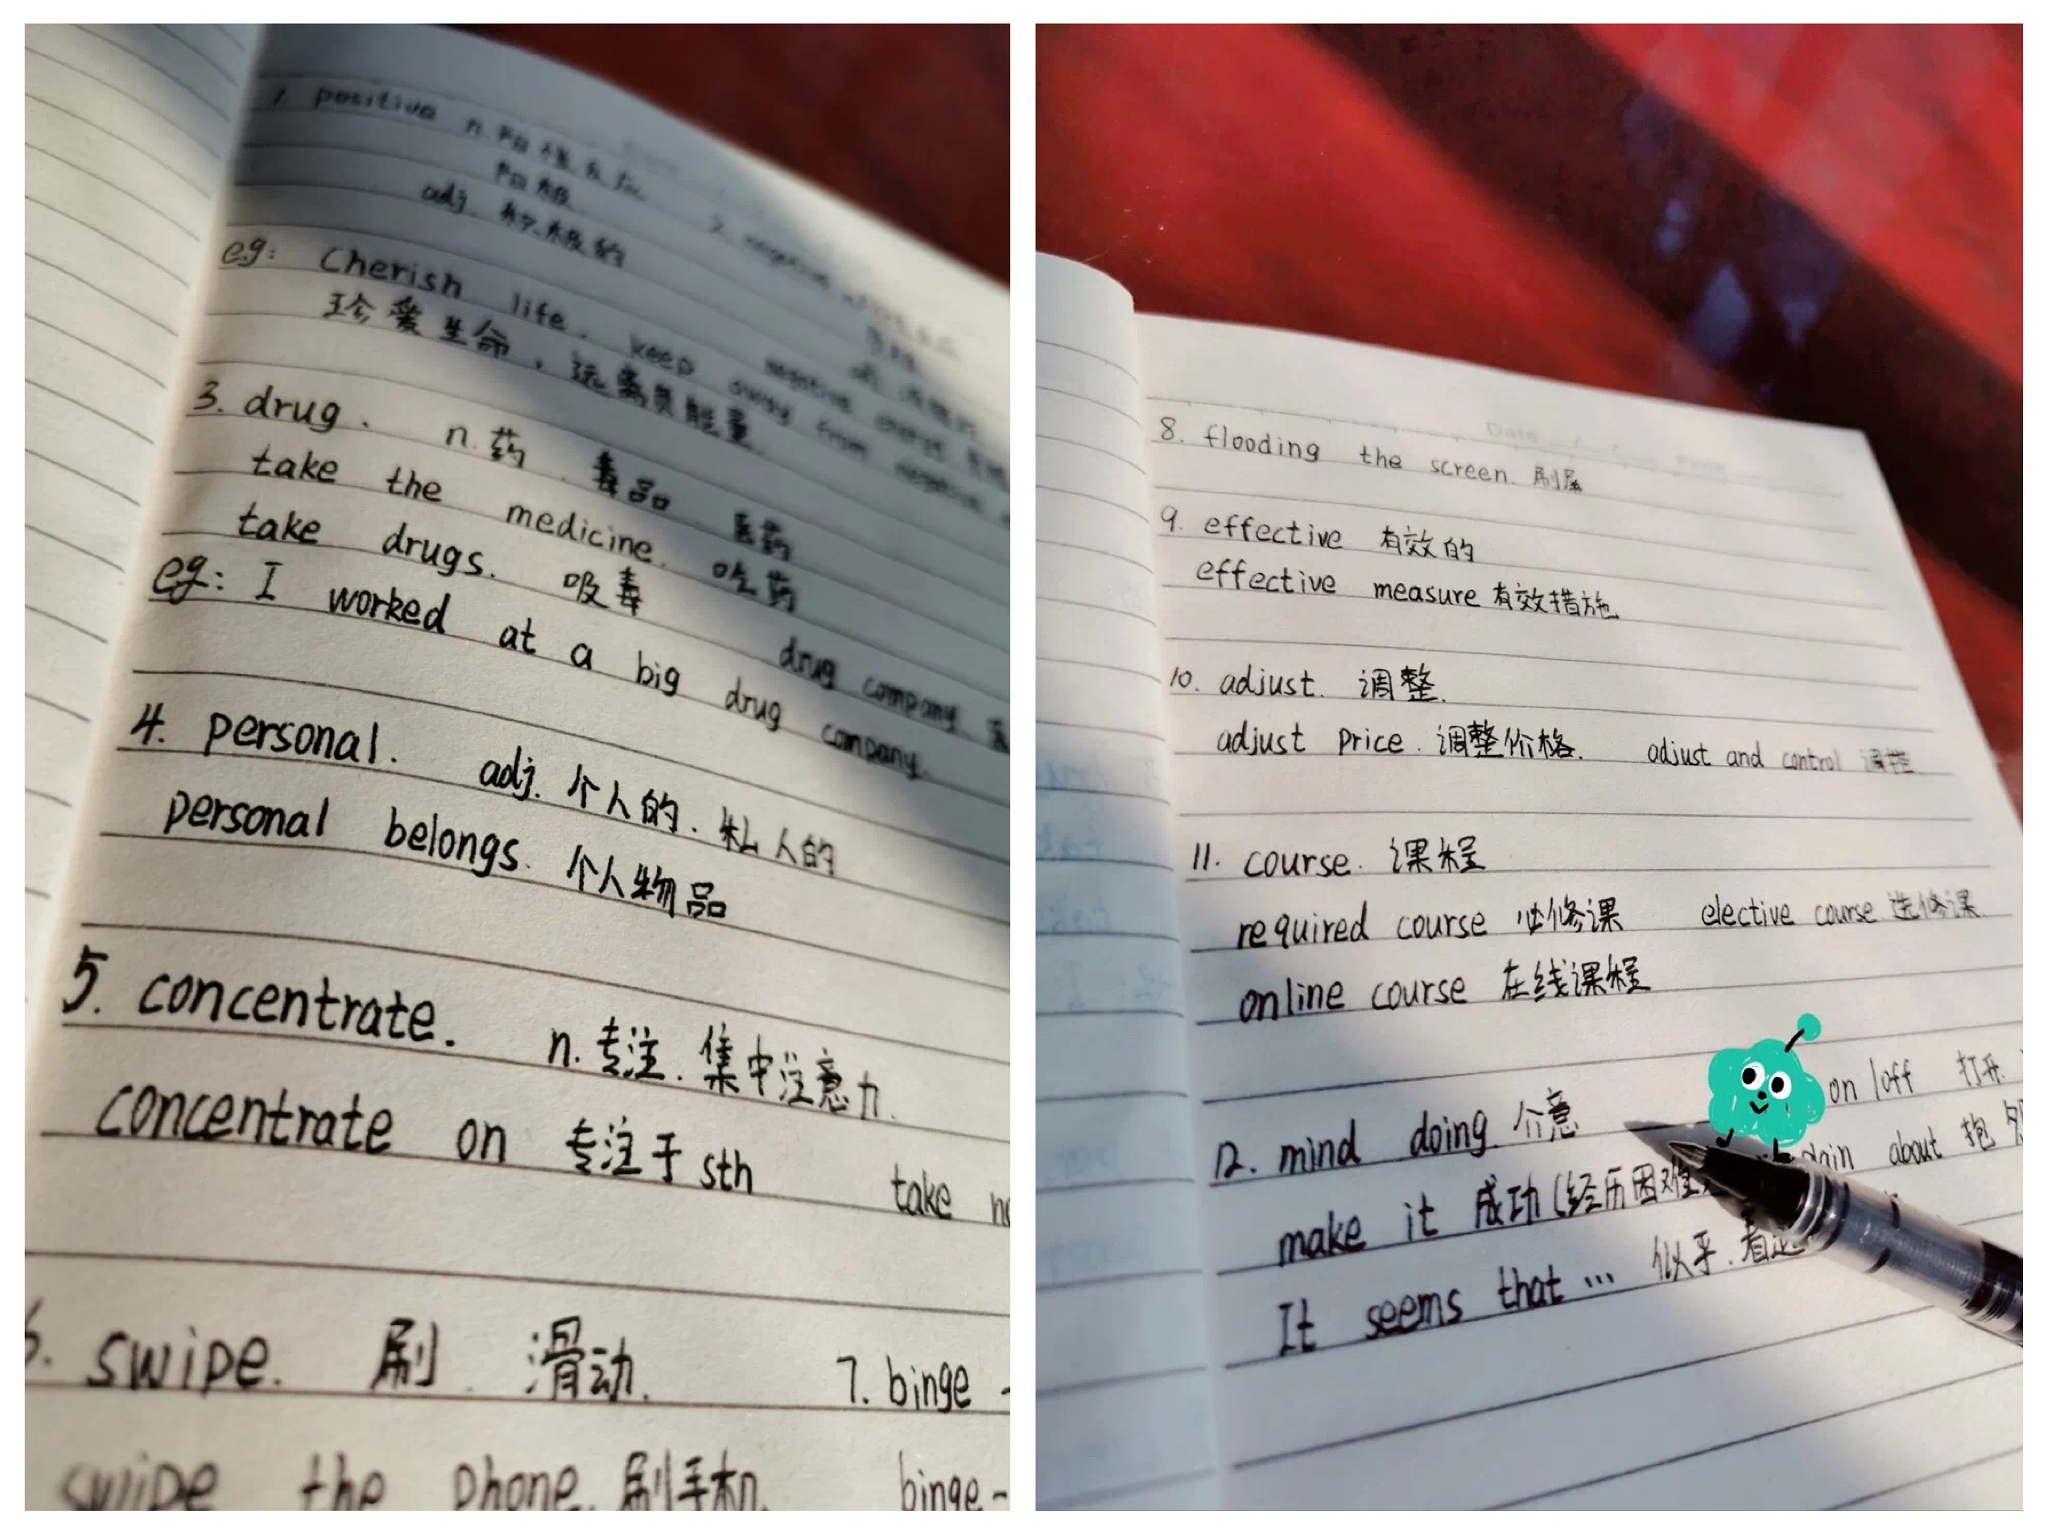 1. positive n. 阳性反应
阳极
adj. 积极的
2. negative
eg: Cherish life, keep away from negative
珍爱生命,远离负能量.
negative energy
3. drug. n. 药. 毒品 医药
take the medicine. 吃药
take drugs. 吸毒 drug company
eg: I worked at a big drug company.
4. personal. adj. 个人的. 私人的
personal belongs. 个人物品
5. concentrate. n. 专注. 集中注意力.
concentrate on 专注于 sth take
6. swipe. 刷. 滑动. 7. binge -
swipe the phone. 刷手机 binge-
8. flooding the screen. 刷屏
9. effective 有效的
effective measure 有效措施
10. adjust. 调整.
adjust price. 调整价格. adjust and control 调控
11. course. 课程
required course 必修课 elective course 选修课
online course 在线课程
12. mind doing 介意 on/off 打开
make it 成功(经历困难 about 抱
It seems that … 似乎. 看